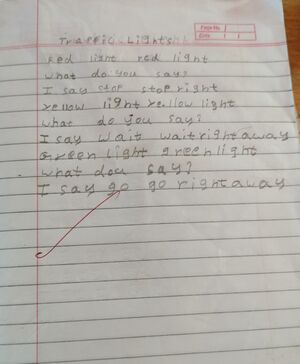 Page No.
Date
Traffic Lights
Red light red light
what do you say?
I say stop stop right
yellow light yellow light
what do you say?
I say wait wait right away
Green light green light
what dou say?
I say go go right away